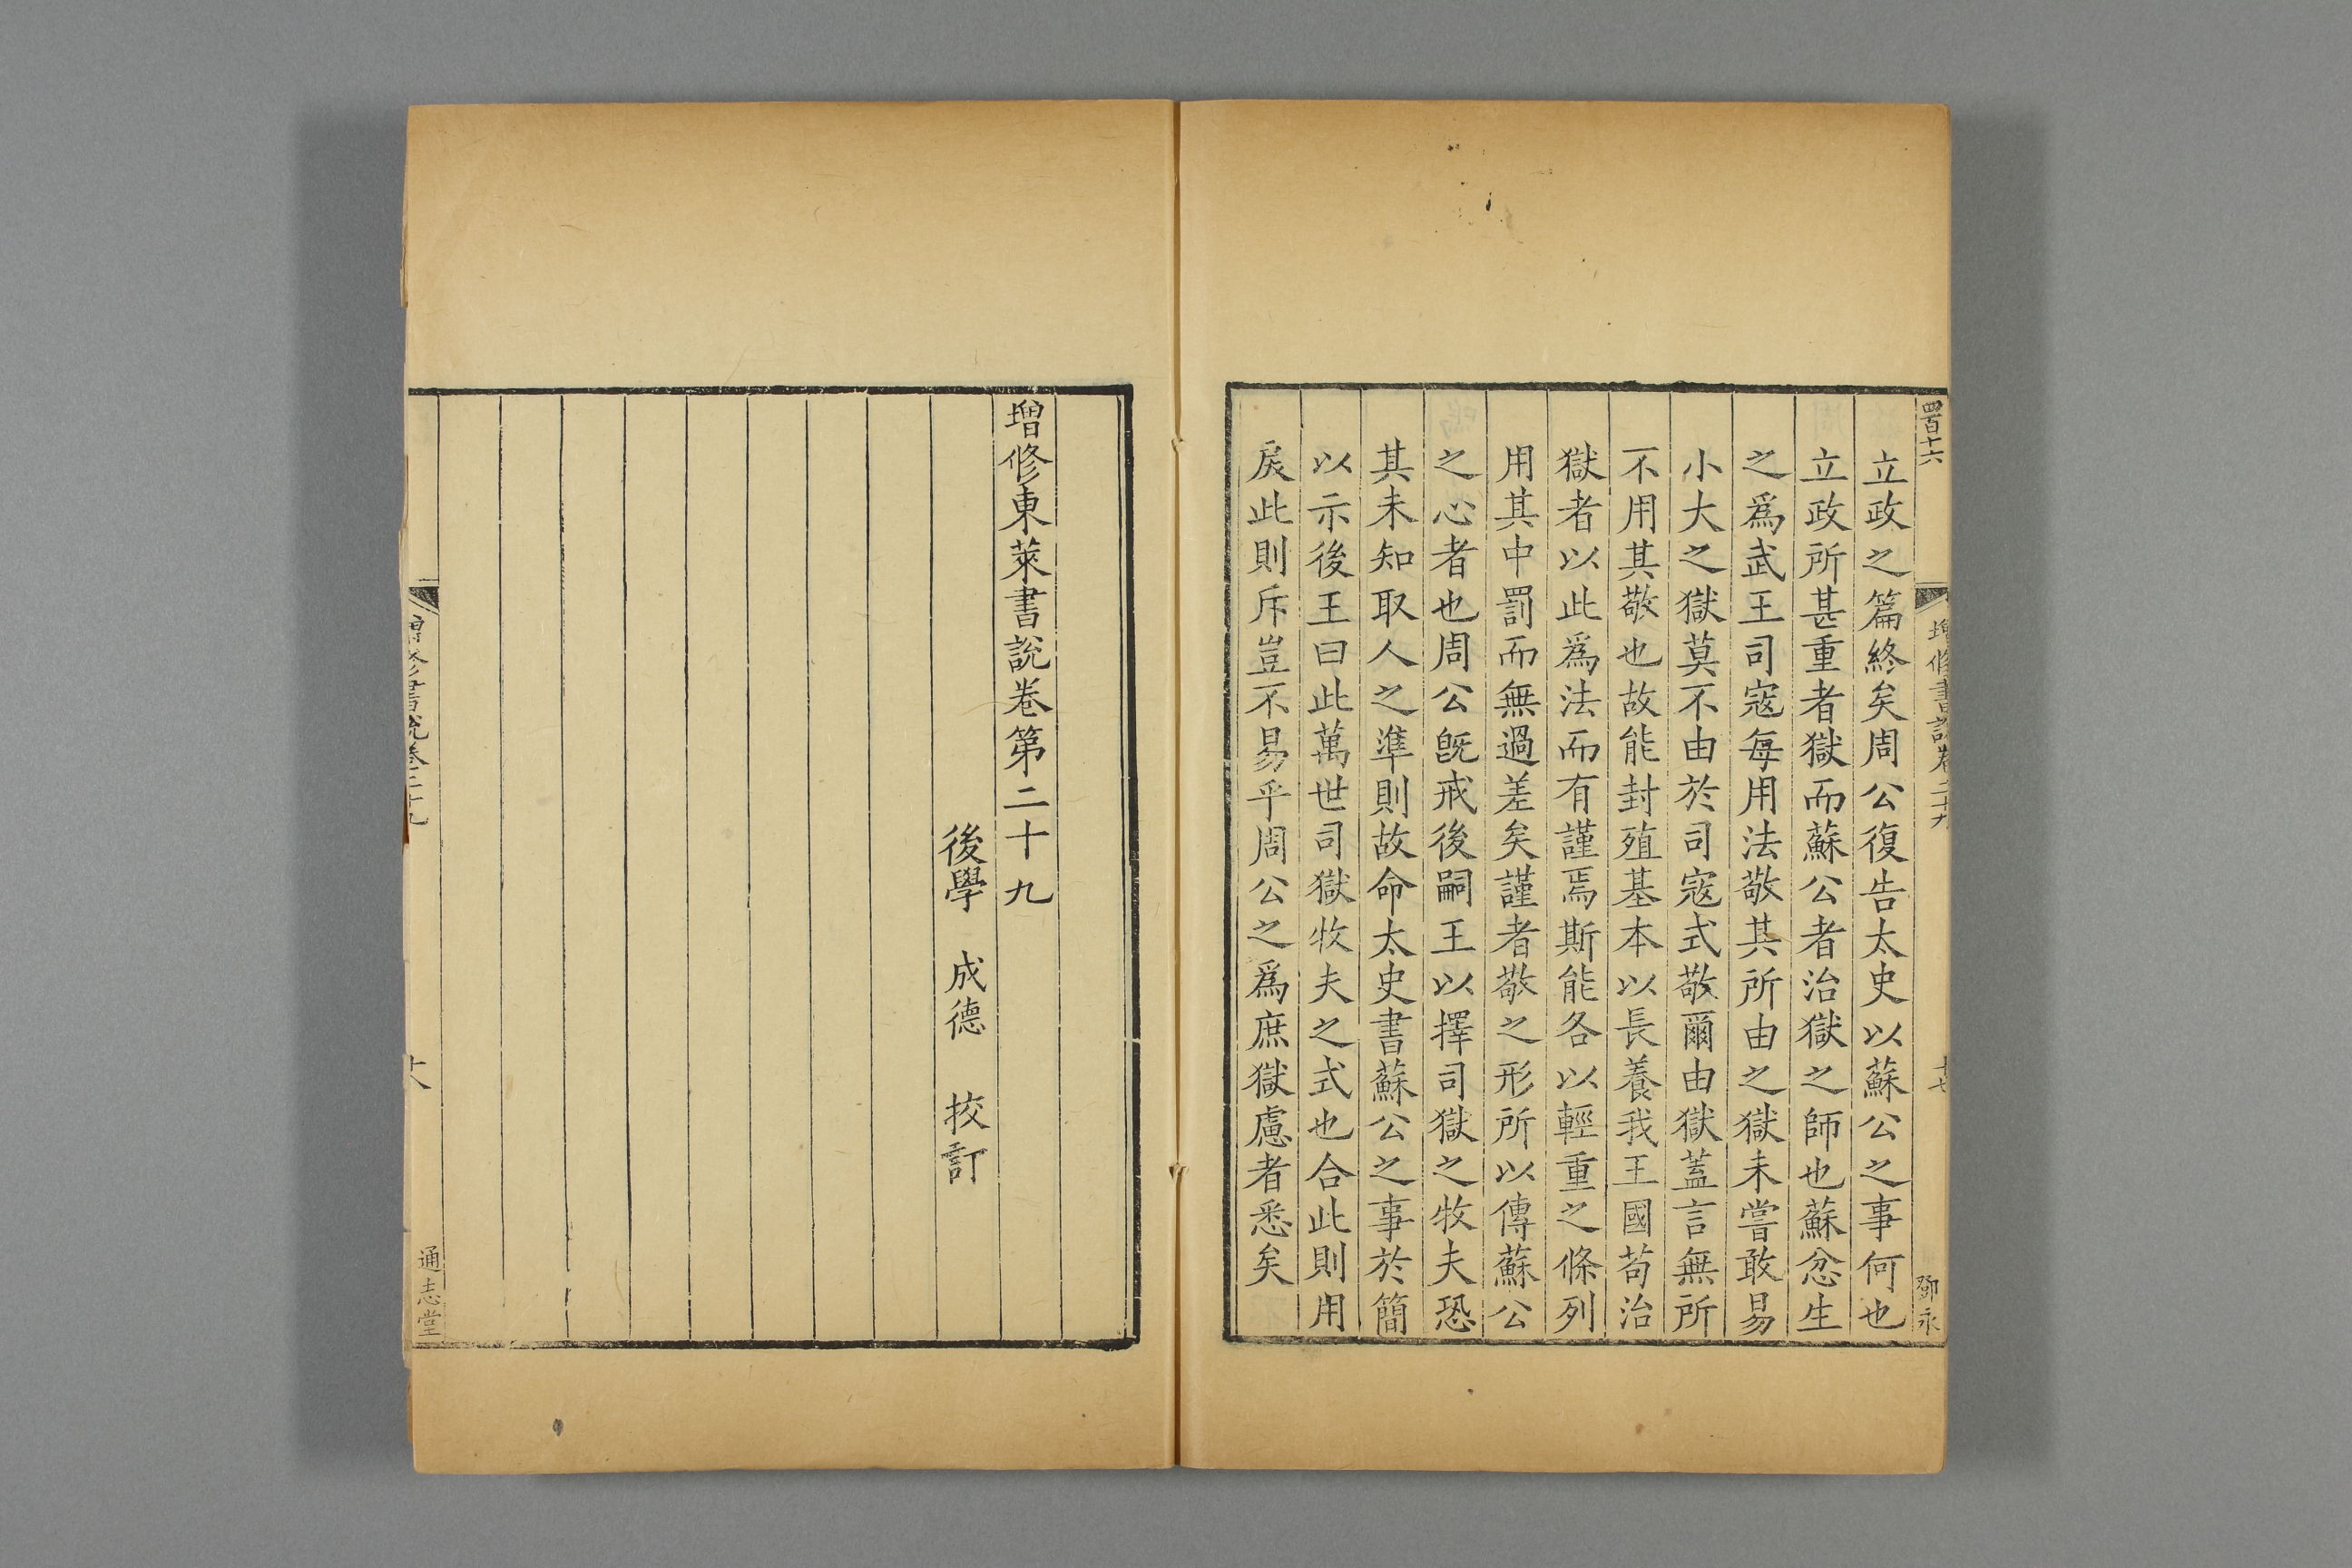 四百十六
增修書說卷二十九
十七
鄧永
立政之篇終矣周公復告太史以蘇公之事何也
立政所甚重者獄而蘇公者治獄之師也蘇忿生
之爲武王司寇每用法敬其所由之獄未嘗敢易
小大之獄莫不由於司寇式敬爾由獄蓋言無所
不用其敬也故能封殖基本以長養我王國茍治
獄者以此爲法而有謹焉斯能各以輕重之條列
用其中罰而無過差矣謹者敬之形所以傳蘇公
之心者也周公旣戒後嗣王以擇司獄之牧夫恐
其未知取人之準則故命太史書蘇公之事於簡
以示後王曰此萬世司獄牧夫之式也合此則用
戾此則斥豈不易乎周公之爲庶獄慮者悉矣
增修東萊書說卷第二十九
後學 成德 挍訂
增修書說卷二十九
十八
通志堂